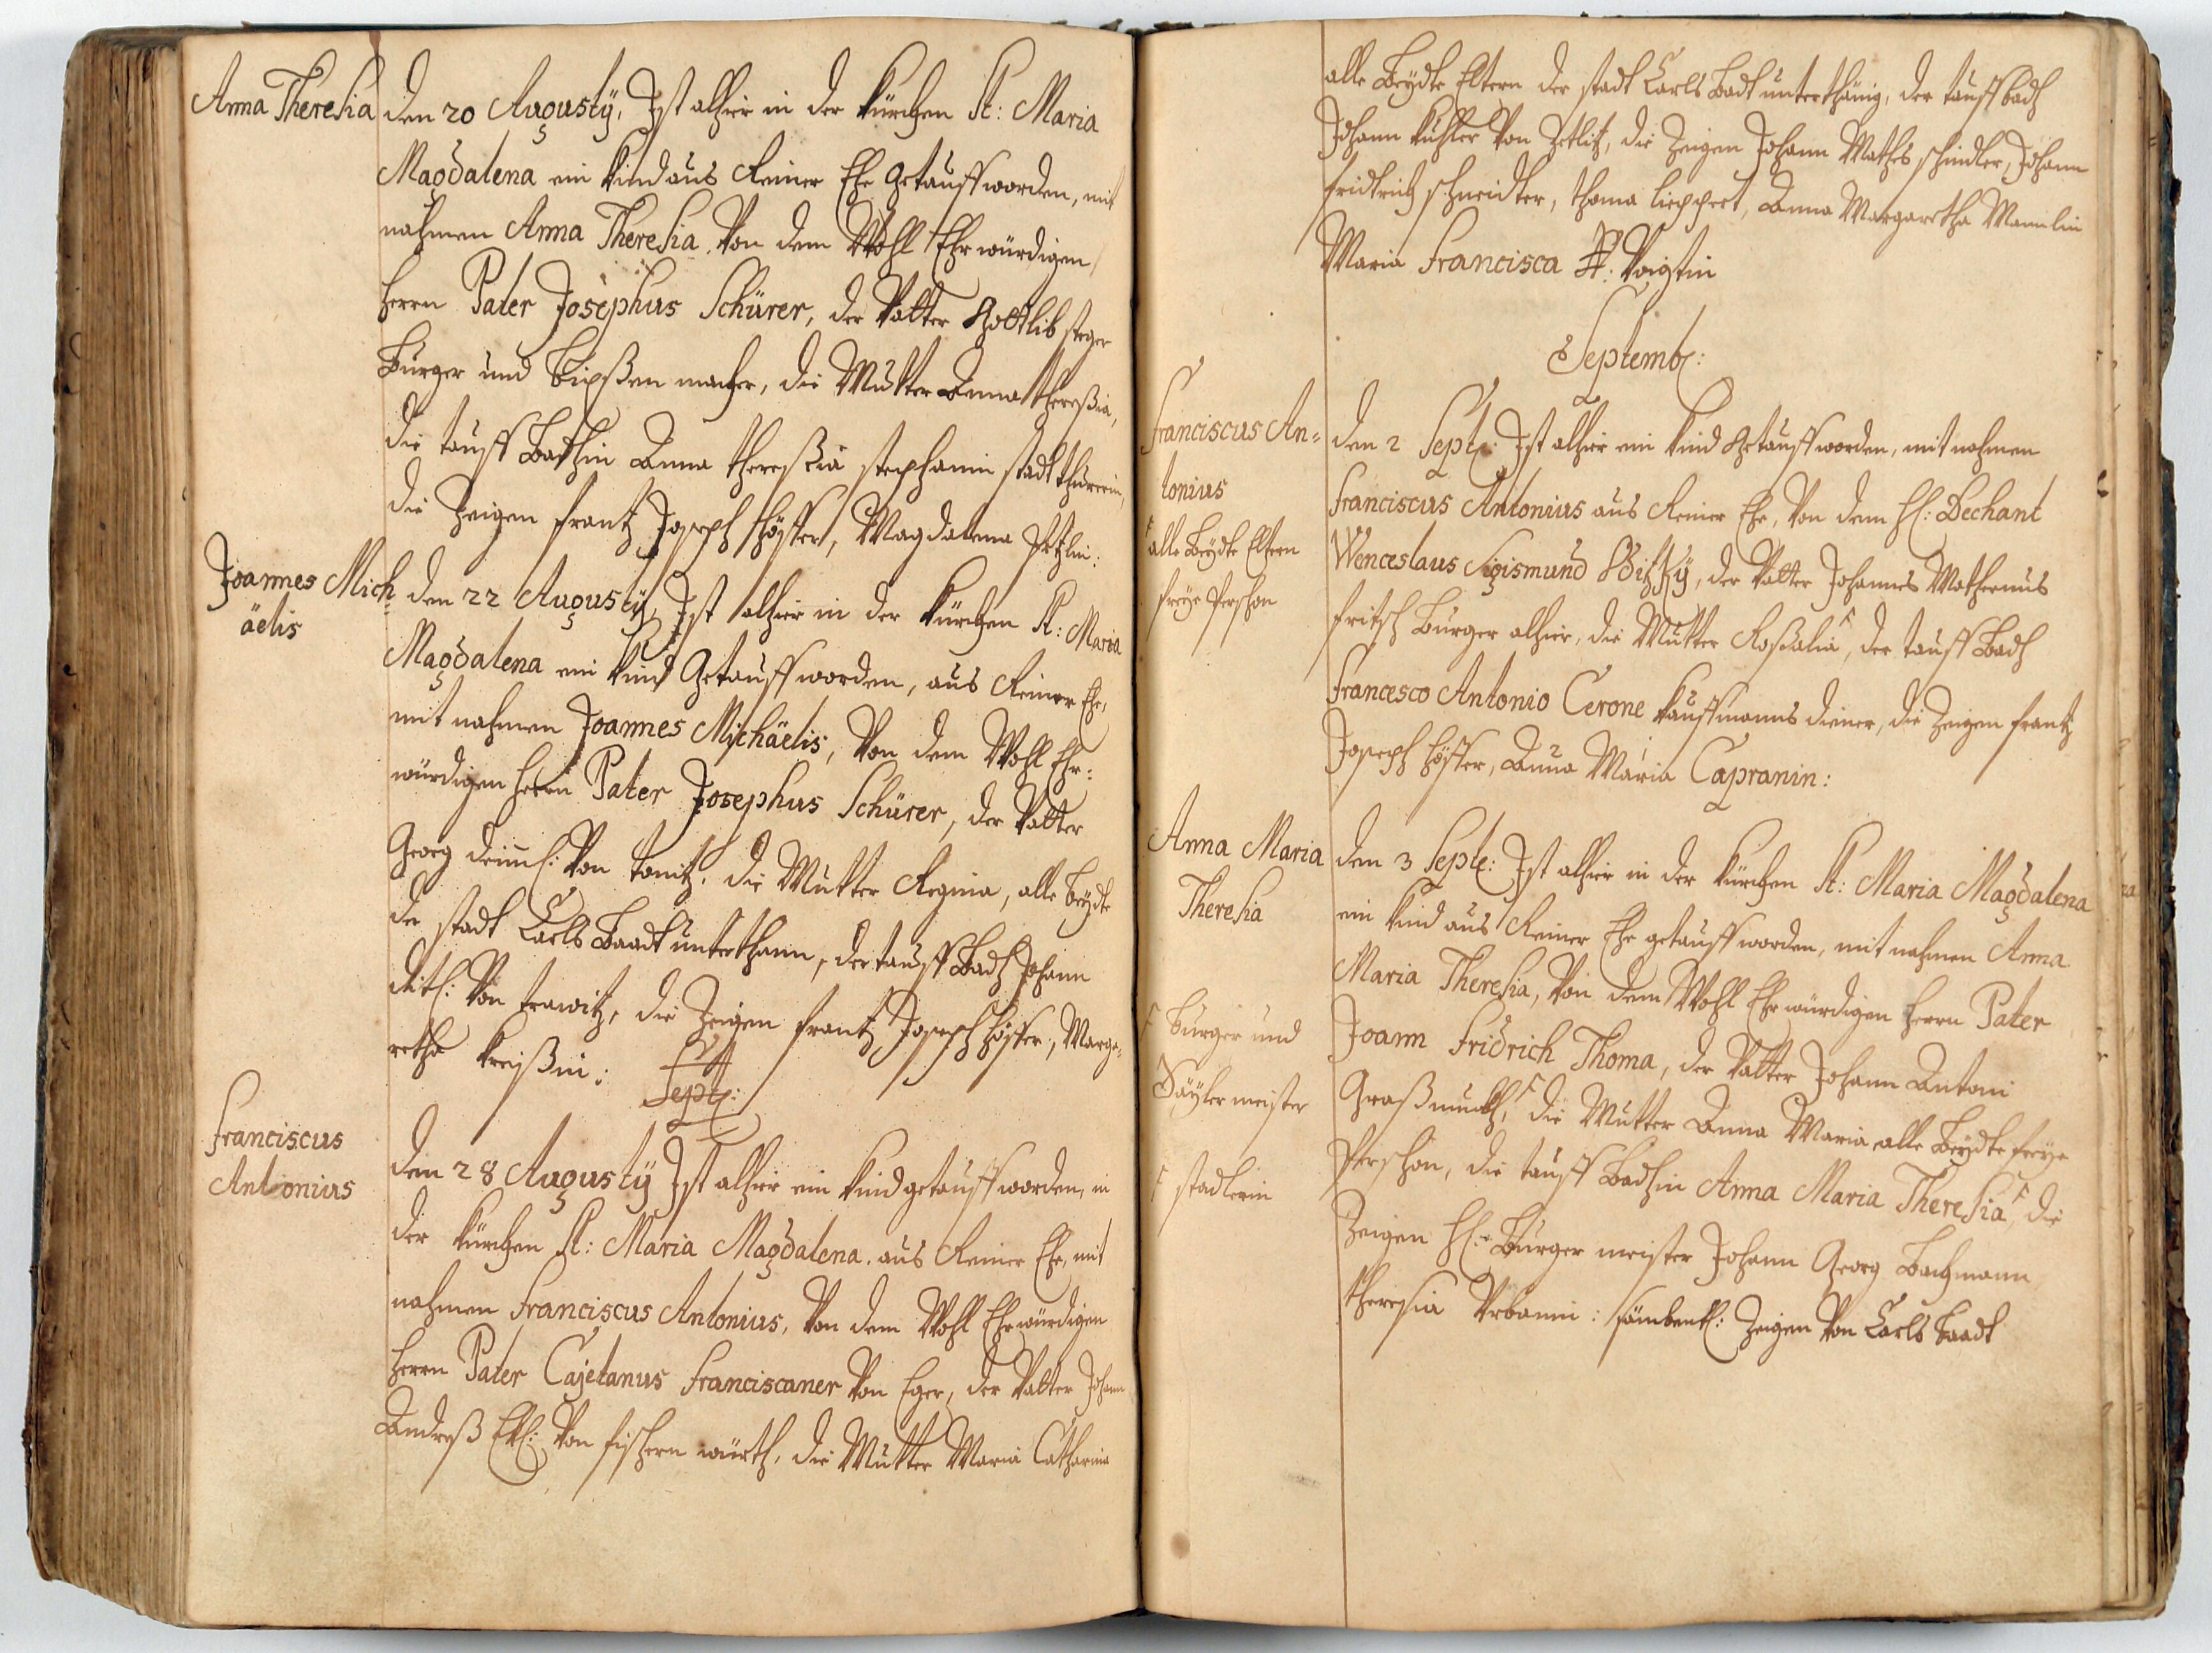 Anna Theresia
den 20 Augusty, Ist alhier in der Kürchen St: Maria
Magdalena ein Kind aus Reiner Ehe getaufft worden, mit
nahmen Anna Theresia, Von dem Wohl Ehrwürdigen
Herrn Pater Josephus Schürer, der Vatter Gottlib Steger
Burger und bixßen macher, die Mutter Anna Theresia,
die tauff Bathin Anna Theresia Stephanin Stadt thurerin,
die Zeigen Frantz Joseph Höffer, Magdalena
Joannes Mich
äelis
den 22 Augusty, Ist alhier in der Kürchen St: Maria
Magdalena ein Kind getaufft worden, aus Reiner Ehe,
mit nahmen Joannes Michäelis, Von dem Wohl Ehr:
würdigen Herrn Pater Josephus Schürer, der Vatter
Georg Von tonitz, die Mutter Regina, alle beydte
der stadt Carls Baadt unterthann, der tauff Badh Johann
Von trawitz, die Zeigen Frantz Joseph Höffer, Marga=
retha Kreißin:
Sept:
Franciscus
Antonius
den 28 Augusty Ist alhier ein Kind getaufft worden, in
der Kürchen St: Maria Magdalena, aus Reiner Ehe, mit
nahmen Franciscus Antonius, Von dem Wohl Ehrwürdigen
Herrn Pater Cajetanus Franciscaner Von Eger, der Vatter Johann
Andreß Von fischern würth, die Mutter Maria Catharina
alle Beydte Eltern der stadt Carls Badt unterthänig, der tauff badh
Johann Kühler Von Zetlitz, die Zeigen Johann Mathes Schindler, Johann
Fridrich Schneidter, Thoma lieppert, Anna Margaretha Mannlin
Maria Francisca Voigtin
Septemb:
Franciscus An=
tonius
den 2 Sept: Ist alhier ein Kind Getaufft worden, mit nahmen
Franciscus Antonius aus Reiner Ehe, Von dem H: Dechant
Wenceslaus Sigismund Bitzky, der Vatter Johannes Mathernus
alle Beydte Eltern
freye Persohn
Fritsch Burger alhier, die Mutter Rosalia, der tauff Badh
Francesco Antonio Cerone Kauffmanns diener, die Zeigen Frantz
Joseph Höffer, Anna Maria Capranin:
Anna Maria
Theresia
den 3 Sept: Ist alhier in der Kürchen St: Maria Magdalena
ein Kind aus Reiner Ehe getaufft worden, mit nahmen Anna
Maria Theresia, Von dem Wohl Ehrwürdigen Herrn Pater
Joann Fridrich Thoma, der Vatter Johann Antoni
burger und
Säyler meister
Graßmuckh, die Mutter Anna Maria alle Beydte freye
Persohn, die tauff Badhin Anna Maria Theresia, die
stadlerin
Zeigen H: Burger meister Johann Georg Bachmann,
Theresia Urbanin: sämbentl: Zeigen Von Carls Baadt